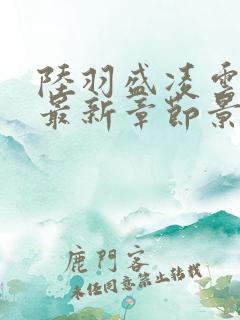 陸羽盛凌雲
最新章節景
鹿門客
未經同意禁止轉載